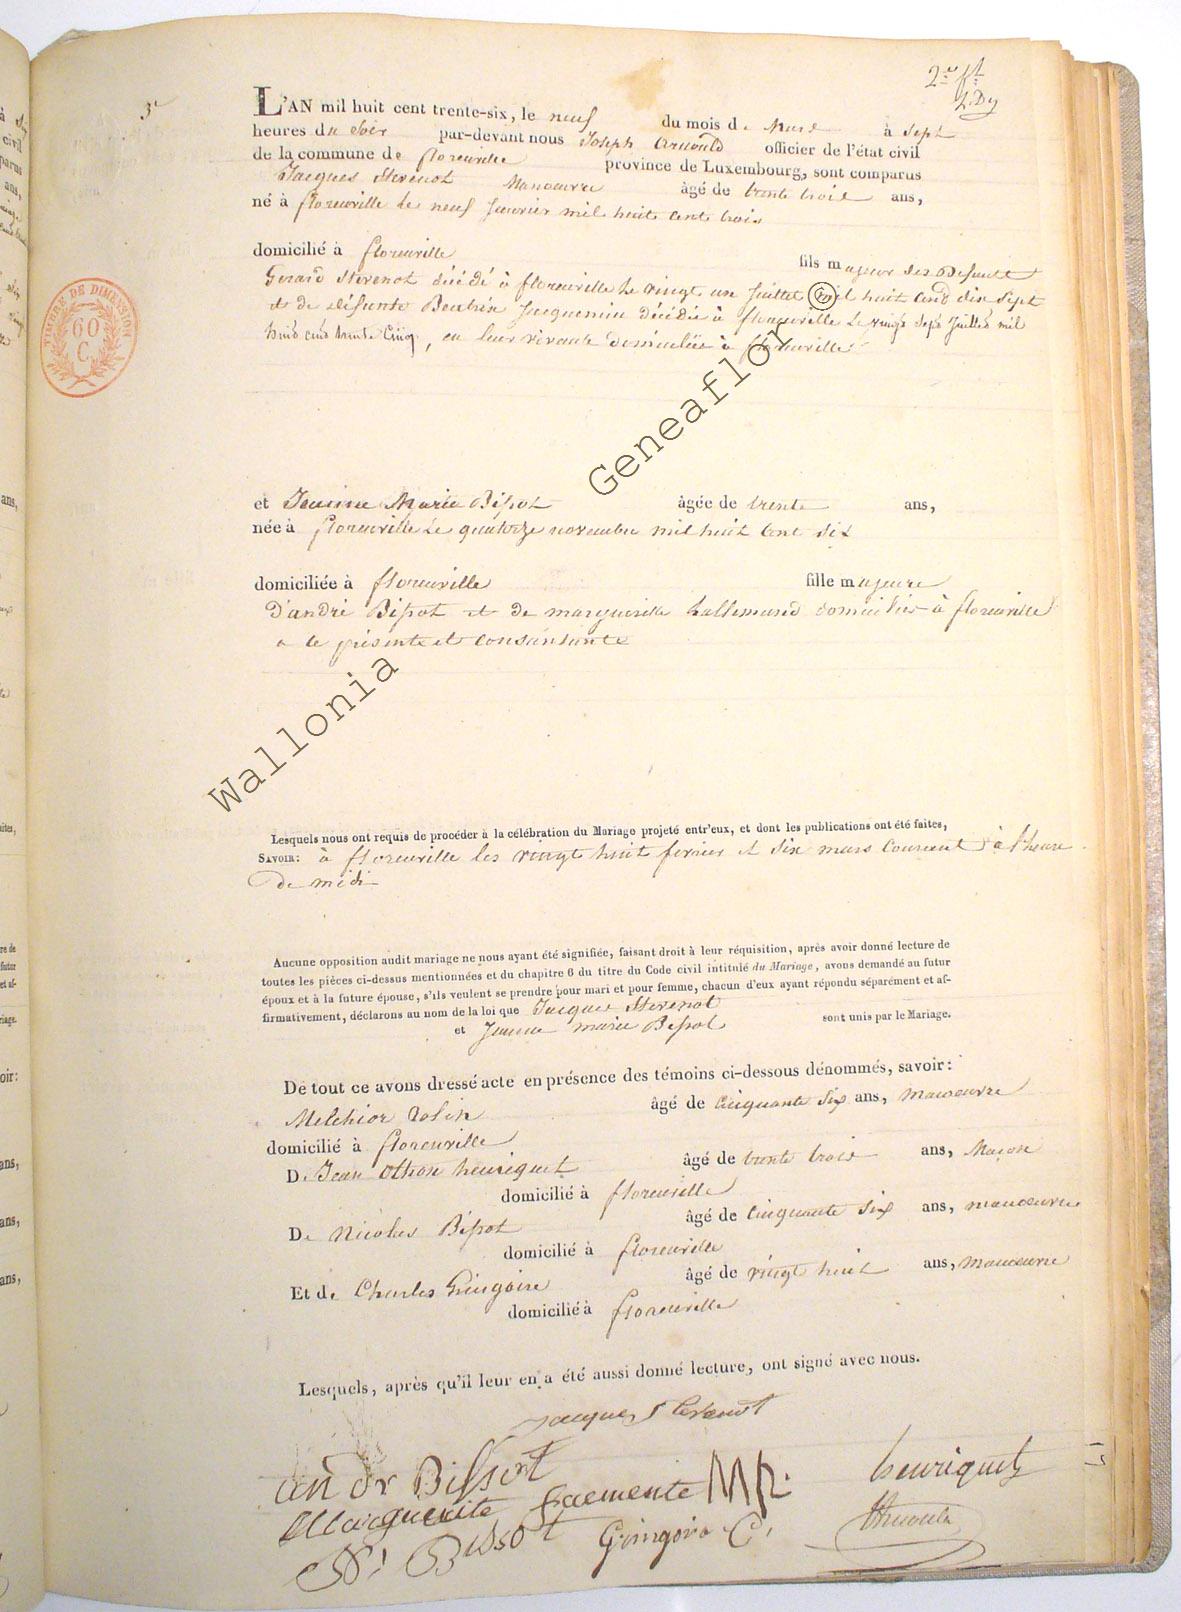 2e ft
L.Dy
3e
L'AN mil huit cent trente-six, le neuf du mois de Mars à sept
heures du Soir par-devant nous Joseph Arnould officier de l'état civil
de la commune de florenville province de Luxembourg, sont comparus
Jacques Stevenot Manoeuvre âgé de trente trois ans,
né à florenville le neuf Janvier mil huit cent trois
domicilié à florenville fils majeur des Defunts
Gerard Stevenot décédé à florenville le vingt un Juillet mil huit cent dix sept
et de défunte Beatrix Jacquemin décédée à florenville le vingt sept Juillet mil
huit cent trente Cinq, en leur vivante domiciliée à florenville
TIMBRE DE DIMENSION
60
C.
Geneaflor ©
et Jeanne Marie Bissot âgée de trente ans,
née à florenville Le quatorze novembre mil huit cent six
domiciliée à florenville fille majeure
d'andré Bissot et de marguerite Lallemand domiciliés à florenville
a ce présente et consentante
Wallonia
Lesquels nous ont requis de procéder à la célébration du Mariage projeté entr'eux, et dont les publications ont été faites,
SAVOIR: à florenville les vingt huit fevrier et six mars courant à l'heure
De midi
Aucune opposition audit mariage ne nous ayant été signifiée, faisant droit à leur réquisition, après avoir donné lecture de
toutes les pièces ci-dessus mentionnées et du chapitre 6 du titre du Code civil intitulé du Mariage, avons demandé au futur
époux et à la future épouse, s'ils veulent se prendre pour mari et pour femme, chacun d'eux ayant répondu séparément et af-
firmativement, déclarons au nom de la loi que Jacques Stevenot
et Jeanne marie Bissot sont unis par le Mariage.
De tout ce avons dressé acte en présence des témoins ci-dessous dénommés, savoir:
Melchior Rolin âgé de cinquante six ans, manoeuvre
domicilié à florenville
De Jean Othon henriquet âgé de trente trois ans, Maçon
domicilié à florenville
De Nicolas Bissot âgé de cinquante six ans, manoeuvre
domicilié à florenville
Et de Charles Gringoire âgé de vingt huit ans, manoeuvre
domicilié à florenville
Lesquels, après qu'il leur en a été aussi donné lecture, ont signé avec nous.
jacques Stevenot
andr Bissort henriquet
Marguerite MR
N. Bissot Gringoire C. Arnould